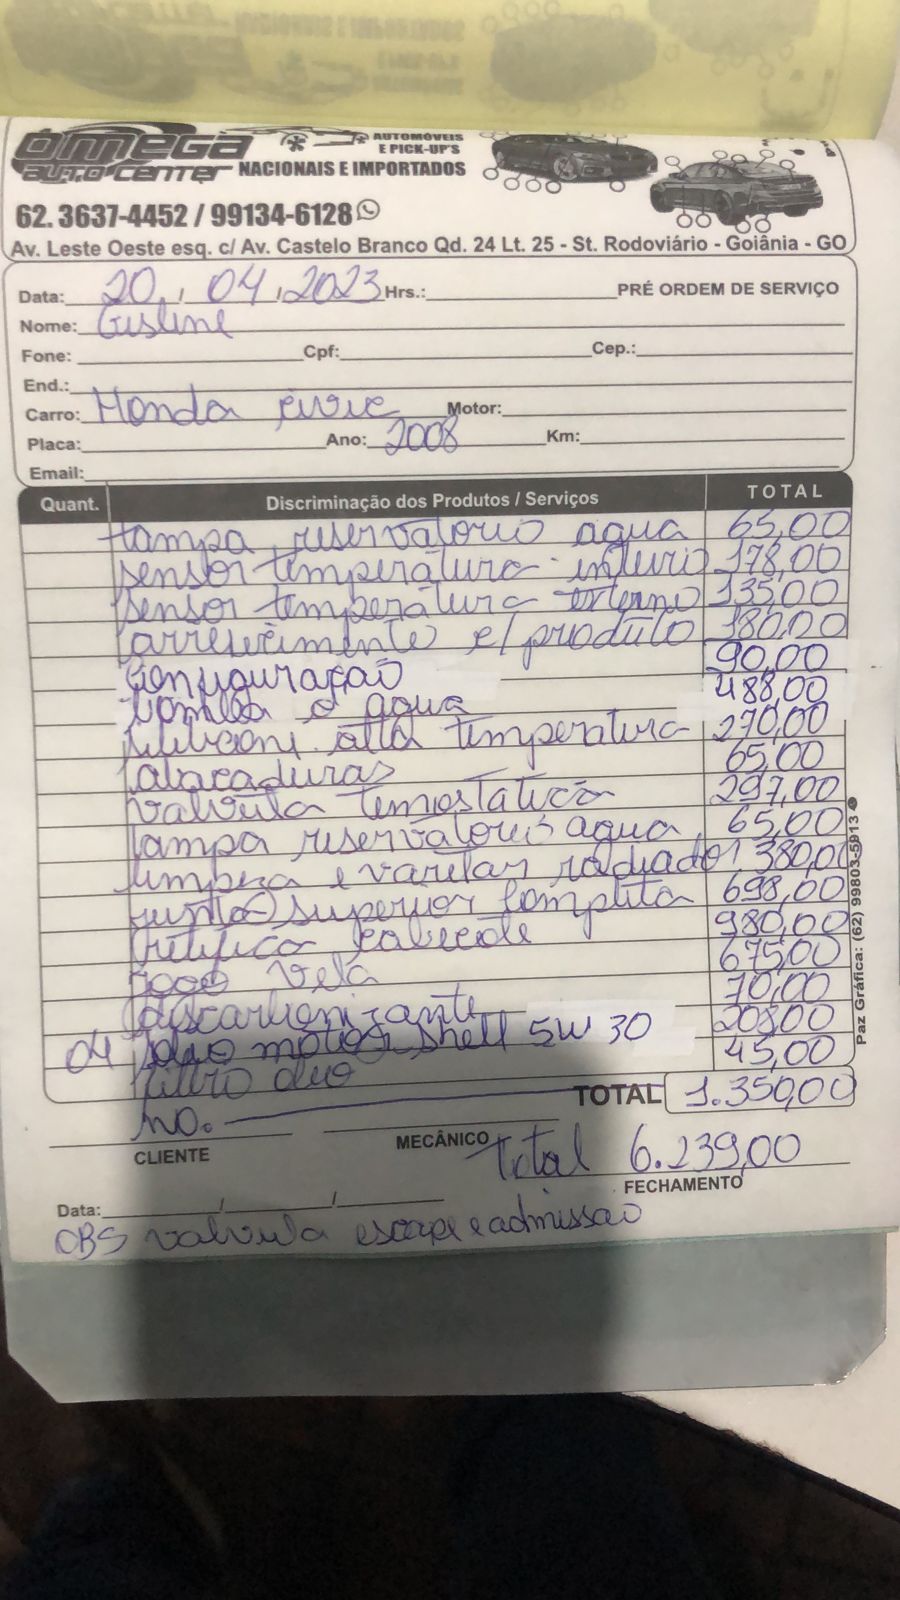 ÔMEGA
AUTO CENTER
AUTOMÓVEIS
E PICK-UP'S
NACIONAIS E IMPORTADOS
62. 3637-4452 / 99134-6128
Av. Leste Oeste esq. c/ Av. Castelo Branco Qd. 24 Lt. 25 - St. Rodoviário - Goiânia - GO
Data: 20 / 04 / 2023 Hrs.: PRÉ ORDEM DE SERVIÇO
Nome: Gislene
Fone: Cpf: Cep.:
End.:
Carro: Honda civic Motor:
Placa: Ano: 2008 Km:
Email:
Quant. Discriminação dos Produtos / Serviços TOTAL
tampa reservatorio agua 65,00
sensor temperatura interio 178,00
sensor temperatura externo 135,00
arrefecimento c/ produto 180,00
Configuração 90,00
bomba d agua 488,00
silicone alta temperatura 270,00
abraçaduras 65,00
valvula temostatica 297,00
tampa reservatorio agua 65,00
limpeza e varetar radiador 380,00
junta superior completa 698,00
retifica cabecote 980,00
jogo vela 675,00
discarbonizante 70,00
04 oleo motor shell 5W 30 208,00
filtro oleo 45,00
mo. TOTAL 1.350,00
CLIENTE MECÂNICO Total 6.239,00
FECHAMENTO
Data: / /
OBS valvula escape e admissao
Paz Gráfica: (62) 99803-5913